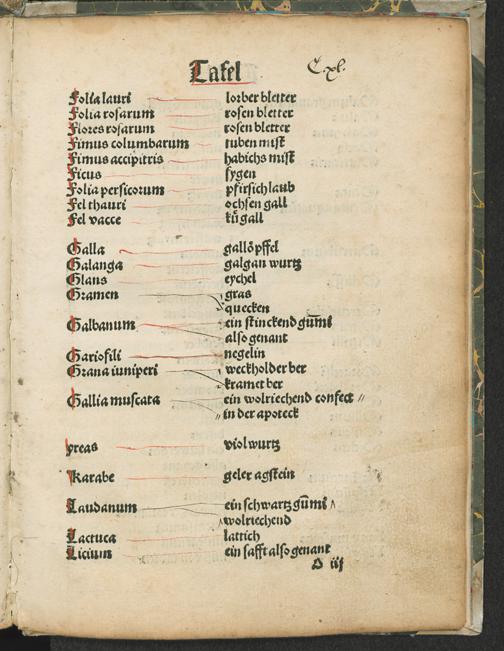 Tafel C.xl.
Folia lauri lorber bletter
Folia rosarum rosen bletter
Flores rosarum rosen bletter
Fimus columbarum tuben mist
Fimus accipitris habichs mist
Ficus fygen
Folia persicorum pfirsich laub
Fel thauri ochsen gall
Fel vacce ků gall
Galla gallöpffel
Galanga galgan wurtz
Glans eychel
Gramen gras
quecken
Galbanum ein stinckend gum̄i
also genant
Gariofili negelin
Grana iuniperi weckholder ber
kramet ber
Gallia muscata ein wolriechend confect //
// in der apoteck
yreas violwurtz
Karabe geler agstein
Laudanum ein schwartz gum̄i
wolriechend
Lactuca lattich
Licium ein safft also genant
O iij